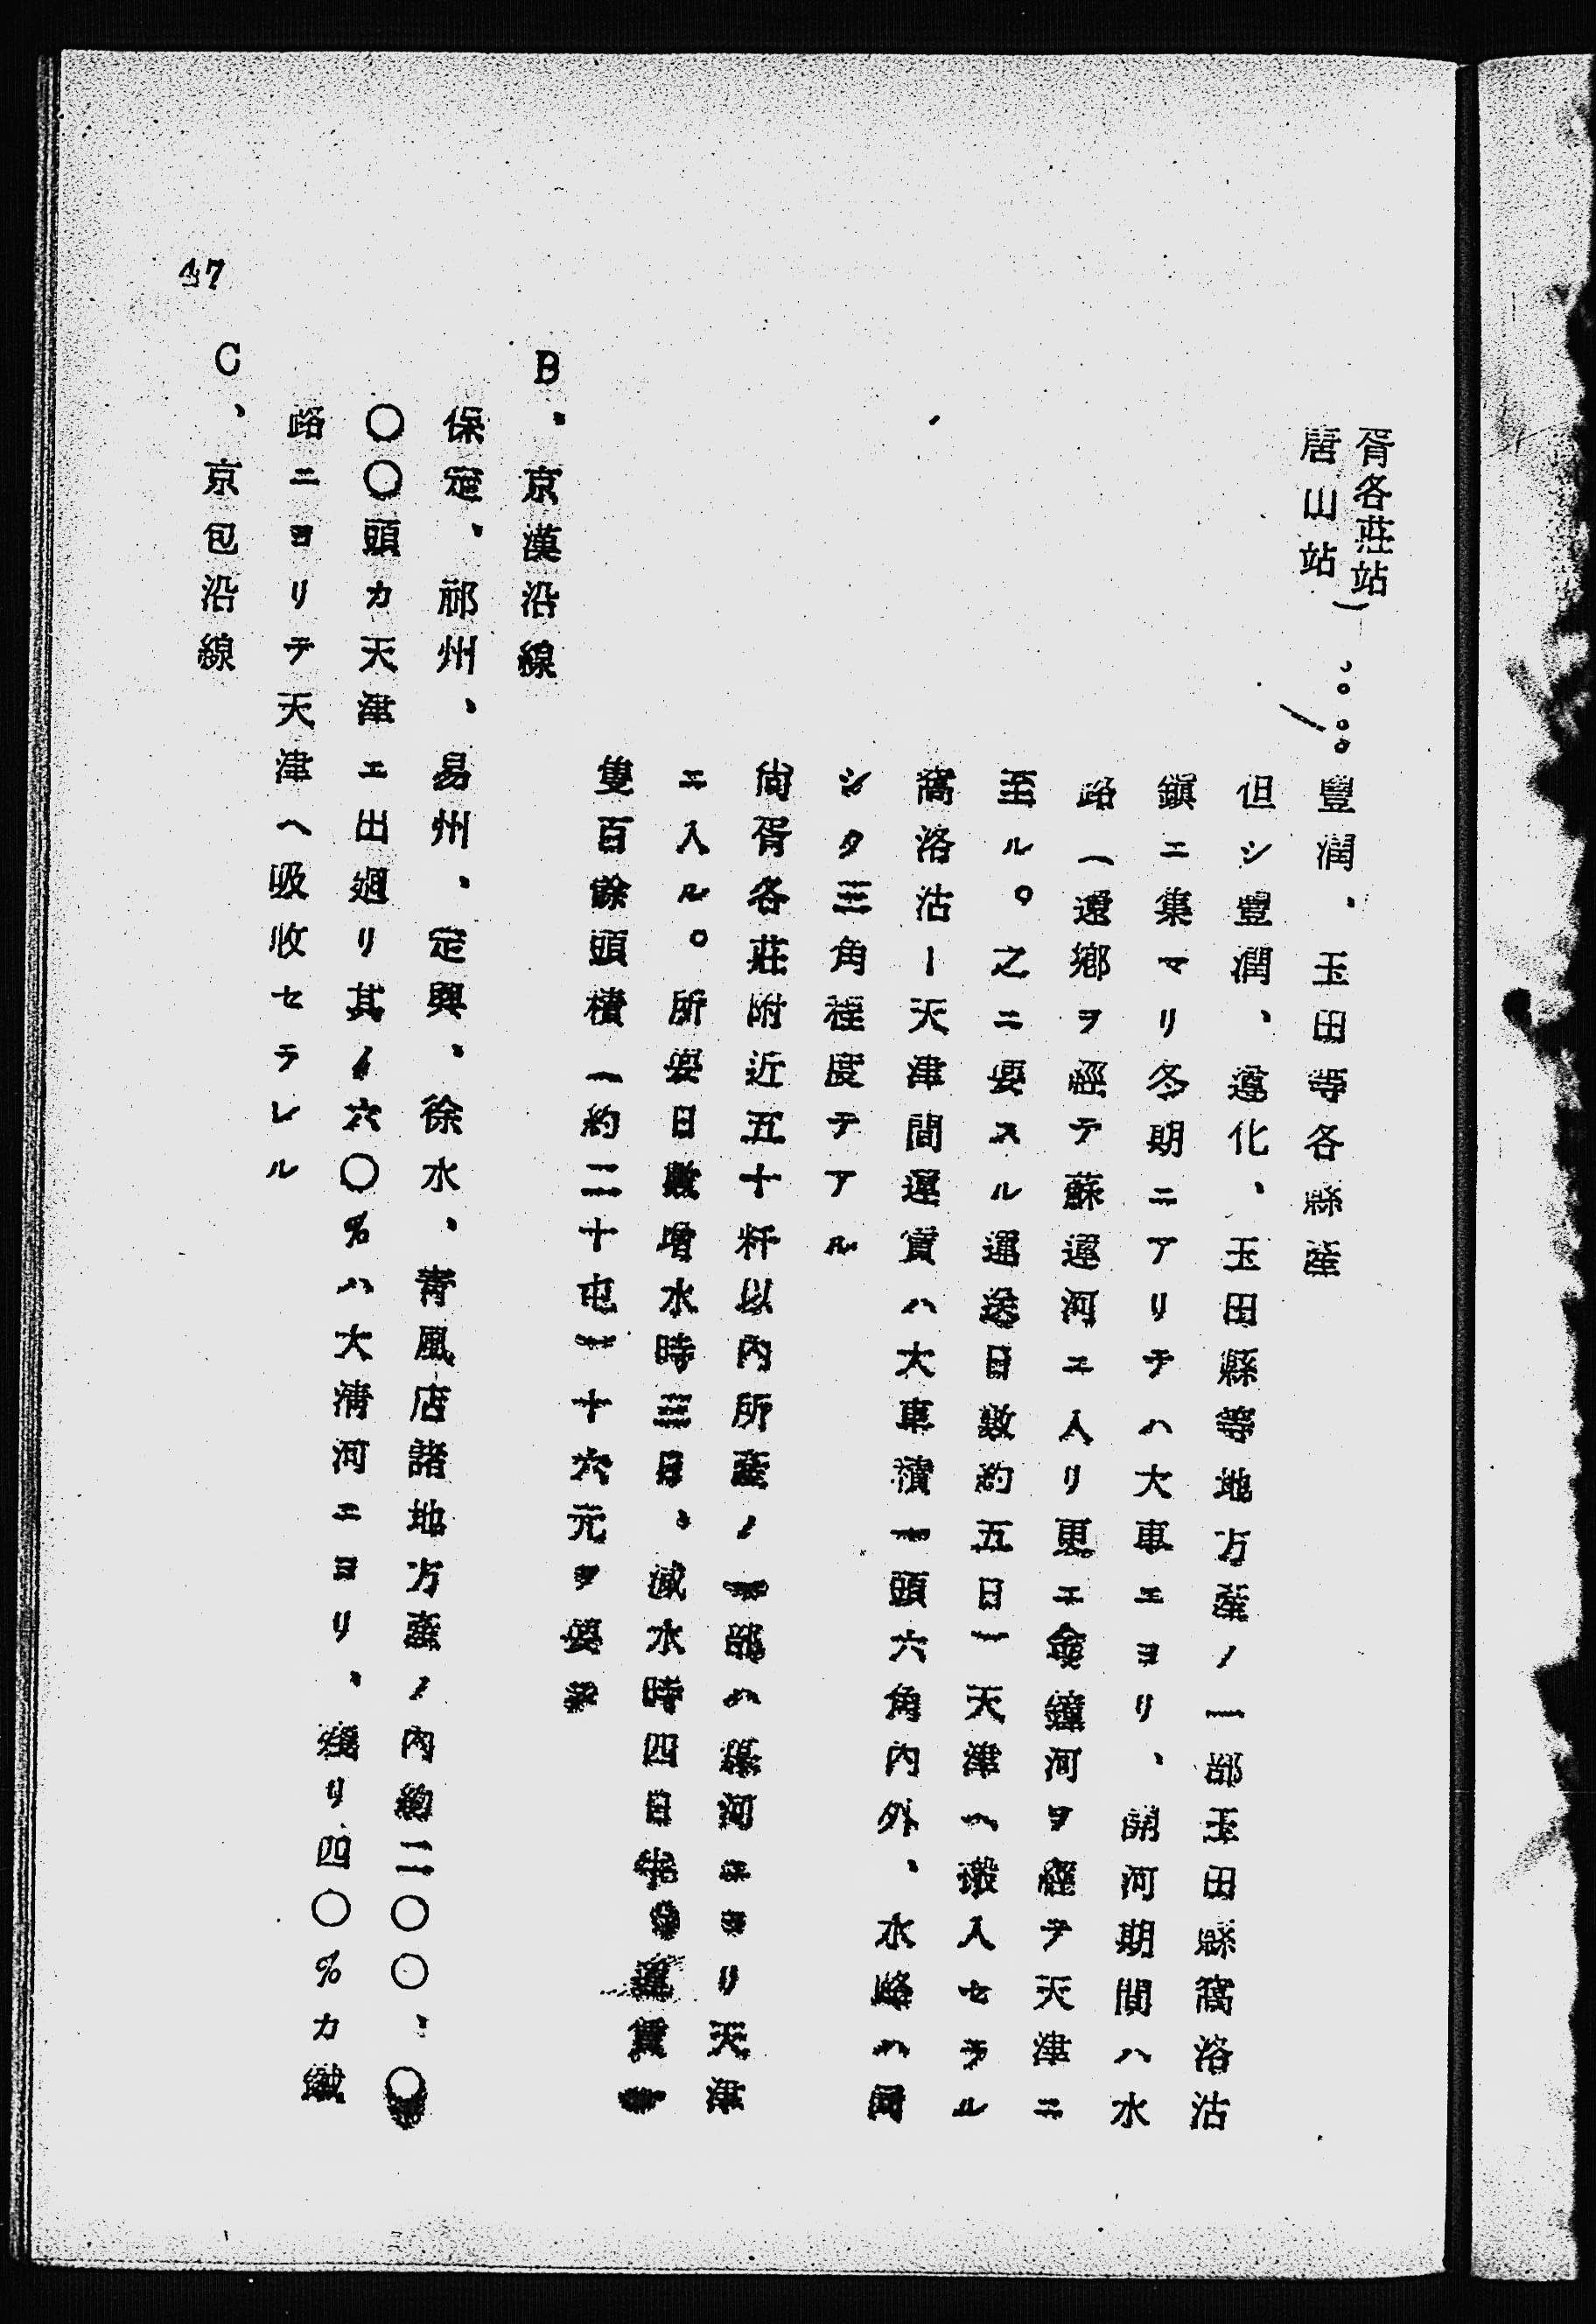 胥各莊站
唐山站)。。。豐潤、玉田等各縣產
但シ豐潤、遵化、玉田縣等地方產ノ一部玉田縣窩洛沽
鎭ニ集マリ冬期ニアリテハ大車エヨリ、開河期間ハ水
路(還鄉ヲ經テ蘇運河エ入リ更エ金鐘河ヲ經テ天津ニ
至ル。之ニ要スル運送日數約五日)天津ヘ搬入セラル
窩洛沽ー天津間運賃ハ大車積一頭六角內外、水路ハ
シタ三角程度テアル
尙胥各莊附近五十粁以內所產ノ一部ハ河エヨリ天津
エ入ル。所要日數增水時三日、減水時四日半運賃一
隻百餘頭積(約二十屯)十六元ヲ要
B、京漢沿線
保定、祁州、易州、定興、徐水、青風店諸地方產ノ內約二〇〇、〇
〇〇頭カ天津エ出廻リ其ノ六〇%ハ大淸河エヨリ、殘リ四〇%カ鐵
路ニヨリテ天津ヘ吸收セラレル
C、京包沿線
47